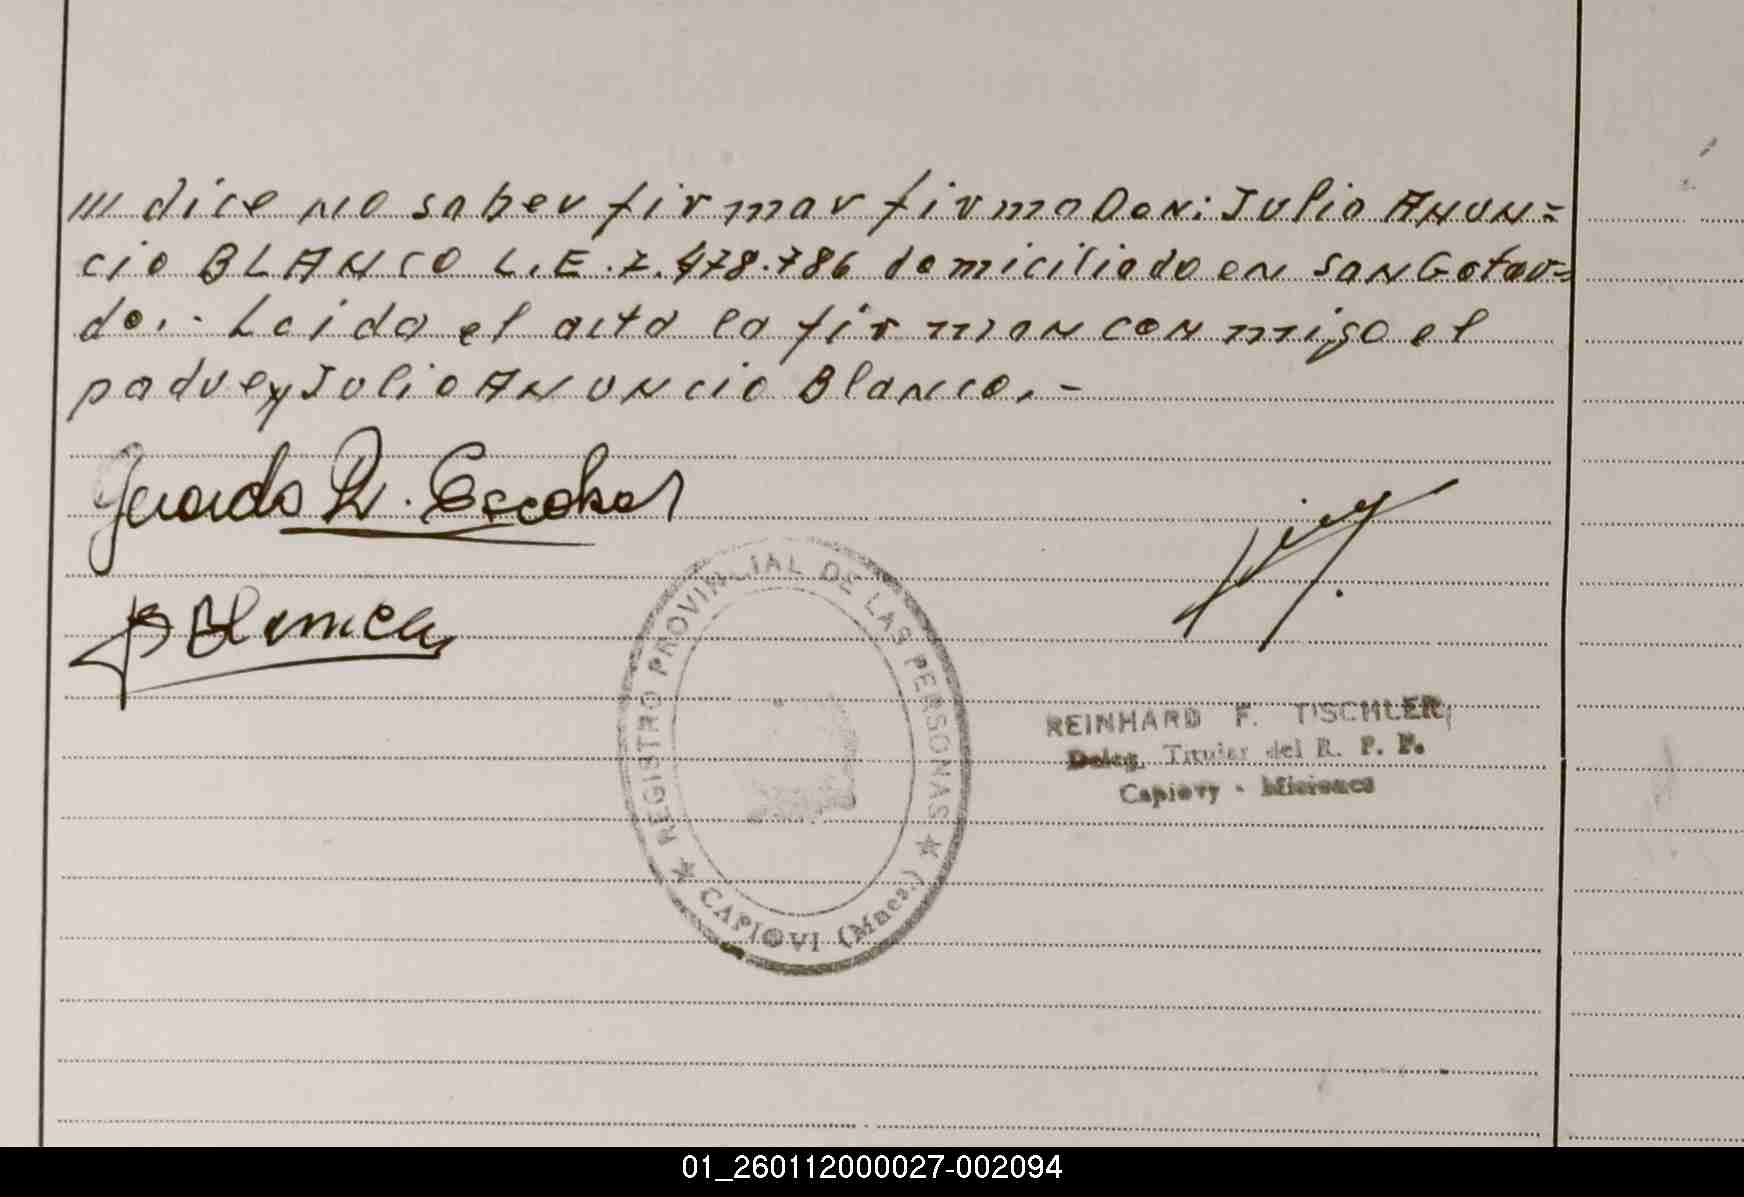 /// dice no saber firmar firma Don: Julio ANUN=
cio BLANCO L.E. 7.478.786 domiciliado en SAN Gotar=
do.- Leida el acta la firman conmigo el
padre y Julio ANUNcio Blanco.-
Gerardo R. Escobar
J B Blanco
REGISTRO PROVINCIAL DE LAS PERSONAS
CAPIOVI (Mnes.)
REINHARD F. TISCHLER
Deleg. Titular del R. P. P.
Capiovy - Misiones
01_260112000027-002094